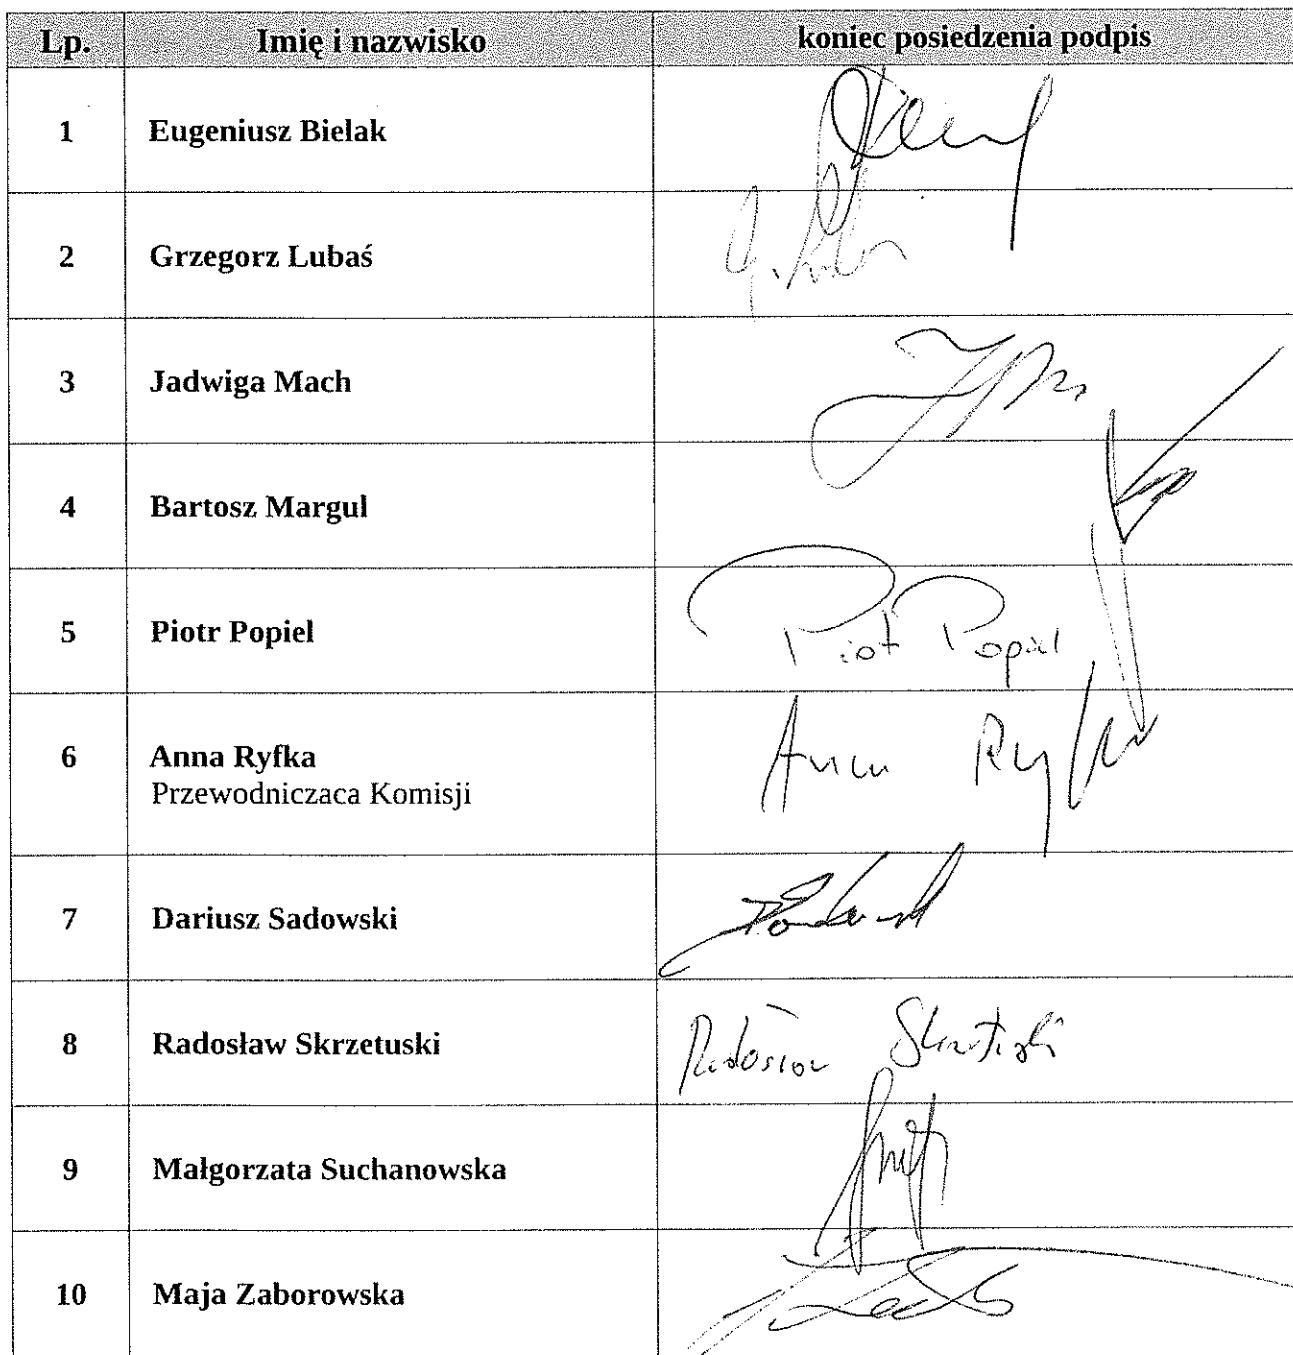 Lp. Imię i nazwisko koniec posiedzenia podpis
1 Eugeniusz Bielak
2 Grzegorz Lubaś
3 Jadwiga Mach
4 Bartosz Margul
5 Piotr Popiel Piotr Popiel
6 Anna Ryfka Anna Ryfka
Przewodniczaca Komisji
7 Dariusz Sadowski
8 Radosław Skrzetuski Radosław Skrzetuski
9 Małgorzata Suchanowska
10 Maja Zaborowska